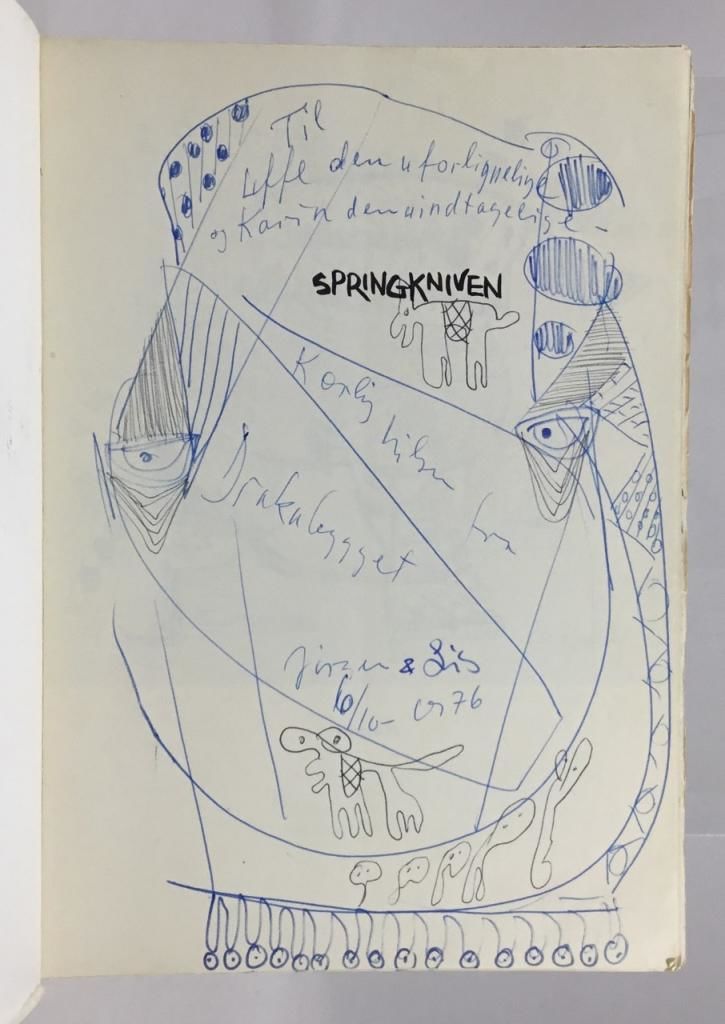 Til
Uffe den uforlignelige
og Karin den uindtagelige -
SPRINGKNIVEN
Kærlig hilsen fra
Drakabygget
Jørgen & Lis
6/10- 1976